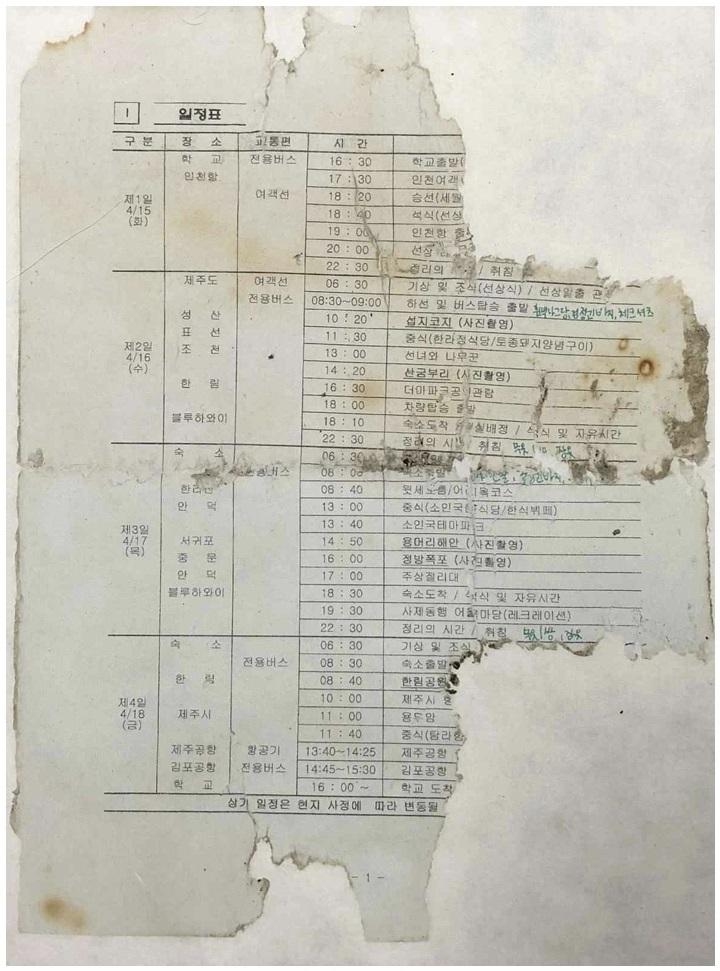 I 일정표
구 분 장 소 교통편 시 간
제1일 4/15 (화)
학 교 전용버스 16 : 30 학교출발(
인천항 17 : 30 인천여객
여객선 18 : 20 승선(세월
18 : 40 석식(선상
19 : 00 인천항 출
20 : 00 선상
22 : 30 정리의 / 취침
제2일 4/16 (수)
제주도 여객선 06 : 30 기상 및 조식(선상식) / 선상일출 관
전용버스 08:30~09:00 하선 및 버스탑승 출발
성 산 10 : 20 섭지코지 (사진촬영)
표 선 11 : 30 중식(한라정식당/토종돼지양념구이)
조 천 13 : 00 선녀와 나무꾼
14 : 20 산굼부리 (사진촬영)
한 림 16 : 30 더마파크공연관람
18 : 00 차량탑승 출발
블루하와이 18 : 10 숙소도착 실배정 / 석식 및 자유시간
22 : 30 정리의 시 / 취침
제3일 4/17 (목)
숙 소 06 : 30
전용버스 08 : 00 숙소출발
한라산 08 : 40 윗세오름/어리목코스
안 덕 13 : 00 중식(소인국 식당/한식뷔페)
13 : 40 소인국테마파크
서귀포 14 : 50 용머리해안 (사진촬영)
중 문 16 : 00 정방폭포 (사진촬영)
안 덕 17 : 00 주상절리대
블루하와이 18 : 30 숙소도착 / 석식 및 자유시간
19 : 30 사제동행 어울마당(레크레이션)
22 : 30 정리의 시간 / 취침
제4일 4/18 (금)
숙 소 06 : 30 기상 및 조식
전용버스 08 : 30 숙소출발
한 림 08 : 40 한림공원
10 : 00 제주시
제주시 11 : 00 용두암
11 : 40 중식(탐라
제주공항 항공기 13:40~14:25 제주공항
김포공항 전용버스 14:45~15:30 김포공항
학 교 16 : 00 ~ 학교 도착
상기 일정은 현지 사정에 따라 변동될
- 1 -